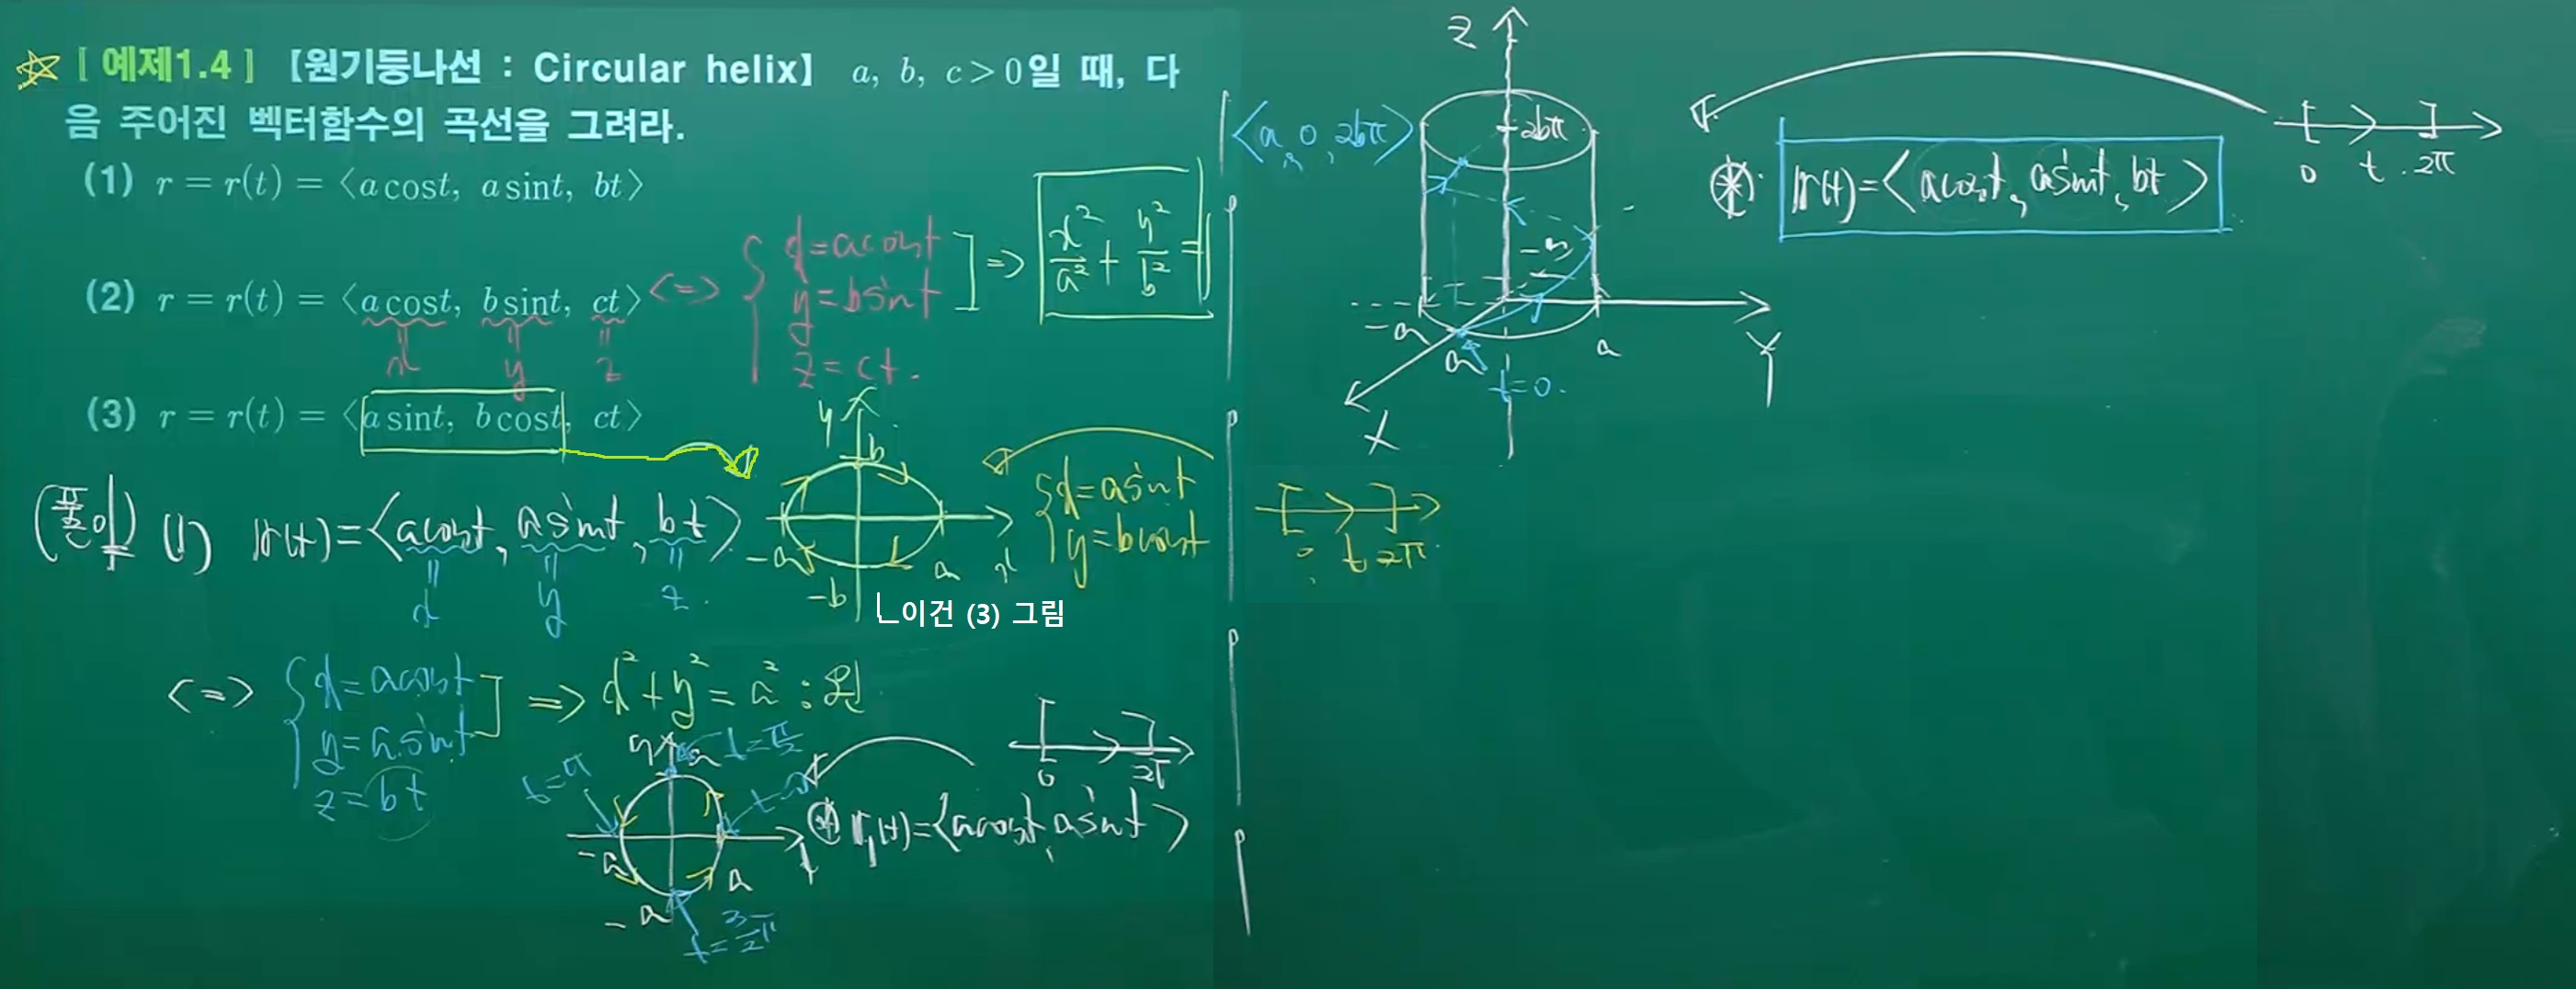 [ 예제1.4 ] 【원기둥나선 : Circular helix】 a, b, c > 0일 때, 다
음 주어진 벡터함수의 곡선을 그려라.
(1) r = r(t) = ⟨a cost, a sint, bt⟩
(2) r = r(t) = ⟨a cost, b sint, ct⟩
x y z
<=> { x = a cost
y = b sint
z = ct.
=> x²/a² + y²/b² = 1
(3) r = r(t) = ⟨a sint, b cost, ct⟩
y
b
-a a x
-b
x = a sint
y = b cost
0 t 2π
이건 (3) 그림
(풀이) (1) r(t) = ⟨a cost, a sint, bt⟩
x y z
<=> { x = a cost
y = a sint
z = bt
=> x² + y² = a² : 원
y a t = π/2
t = π
-a a
-a
t = 3/2 π
0 2π
⊛ r₁(t) = ⟨a cost, a sint⟩
Z
⟨a, 0, 2bπ⟩
2bπ
-a
-a a a
t = 0.
X Y
⊛ r(t) = ⟨a cost, a sint, bt⟩
0 t 2π